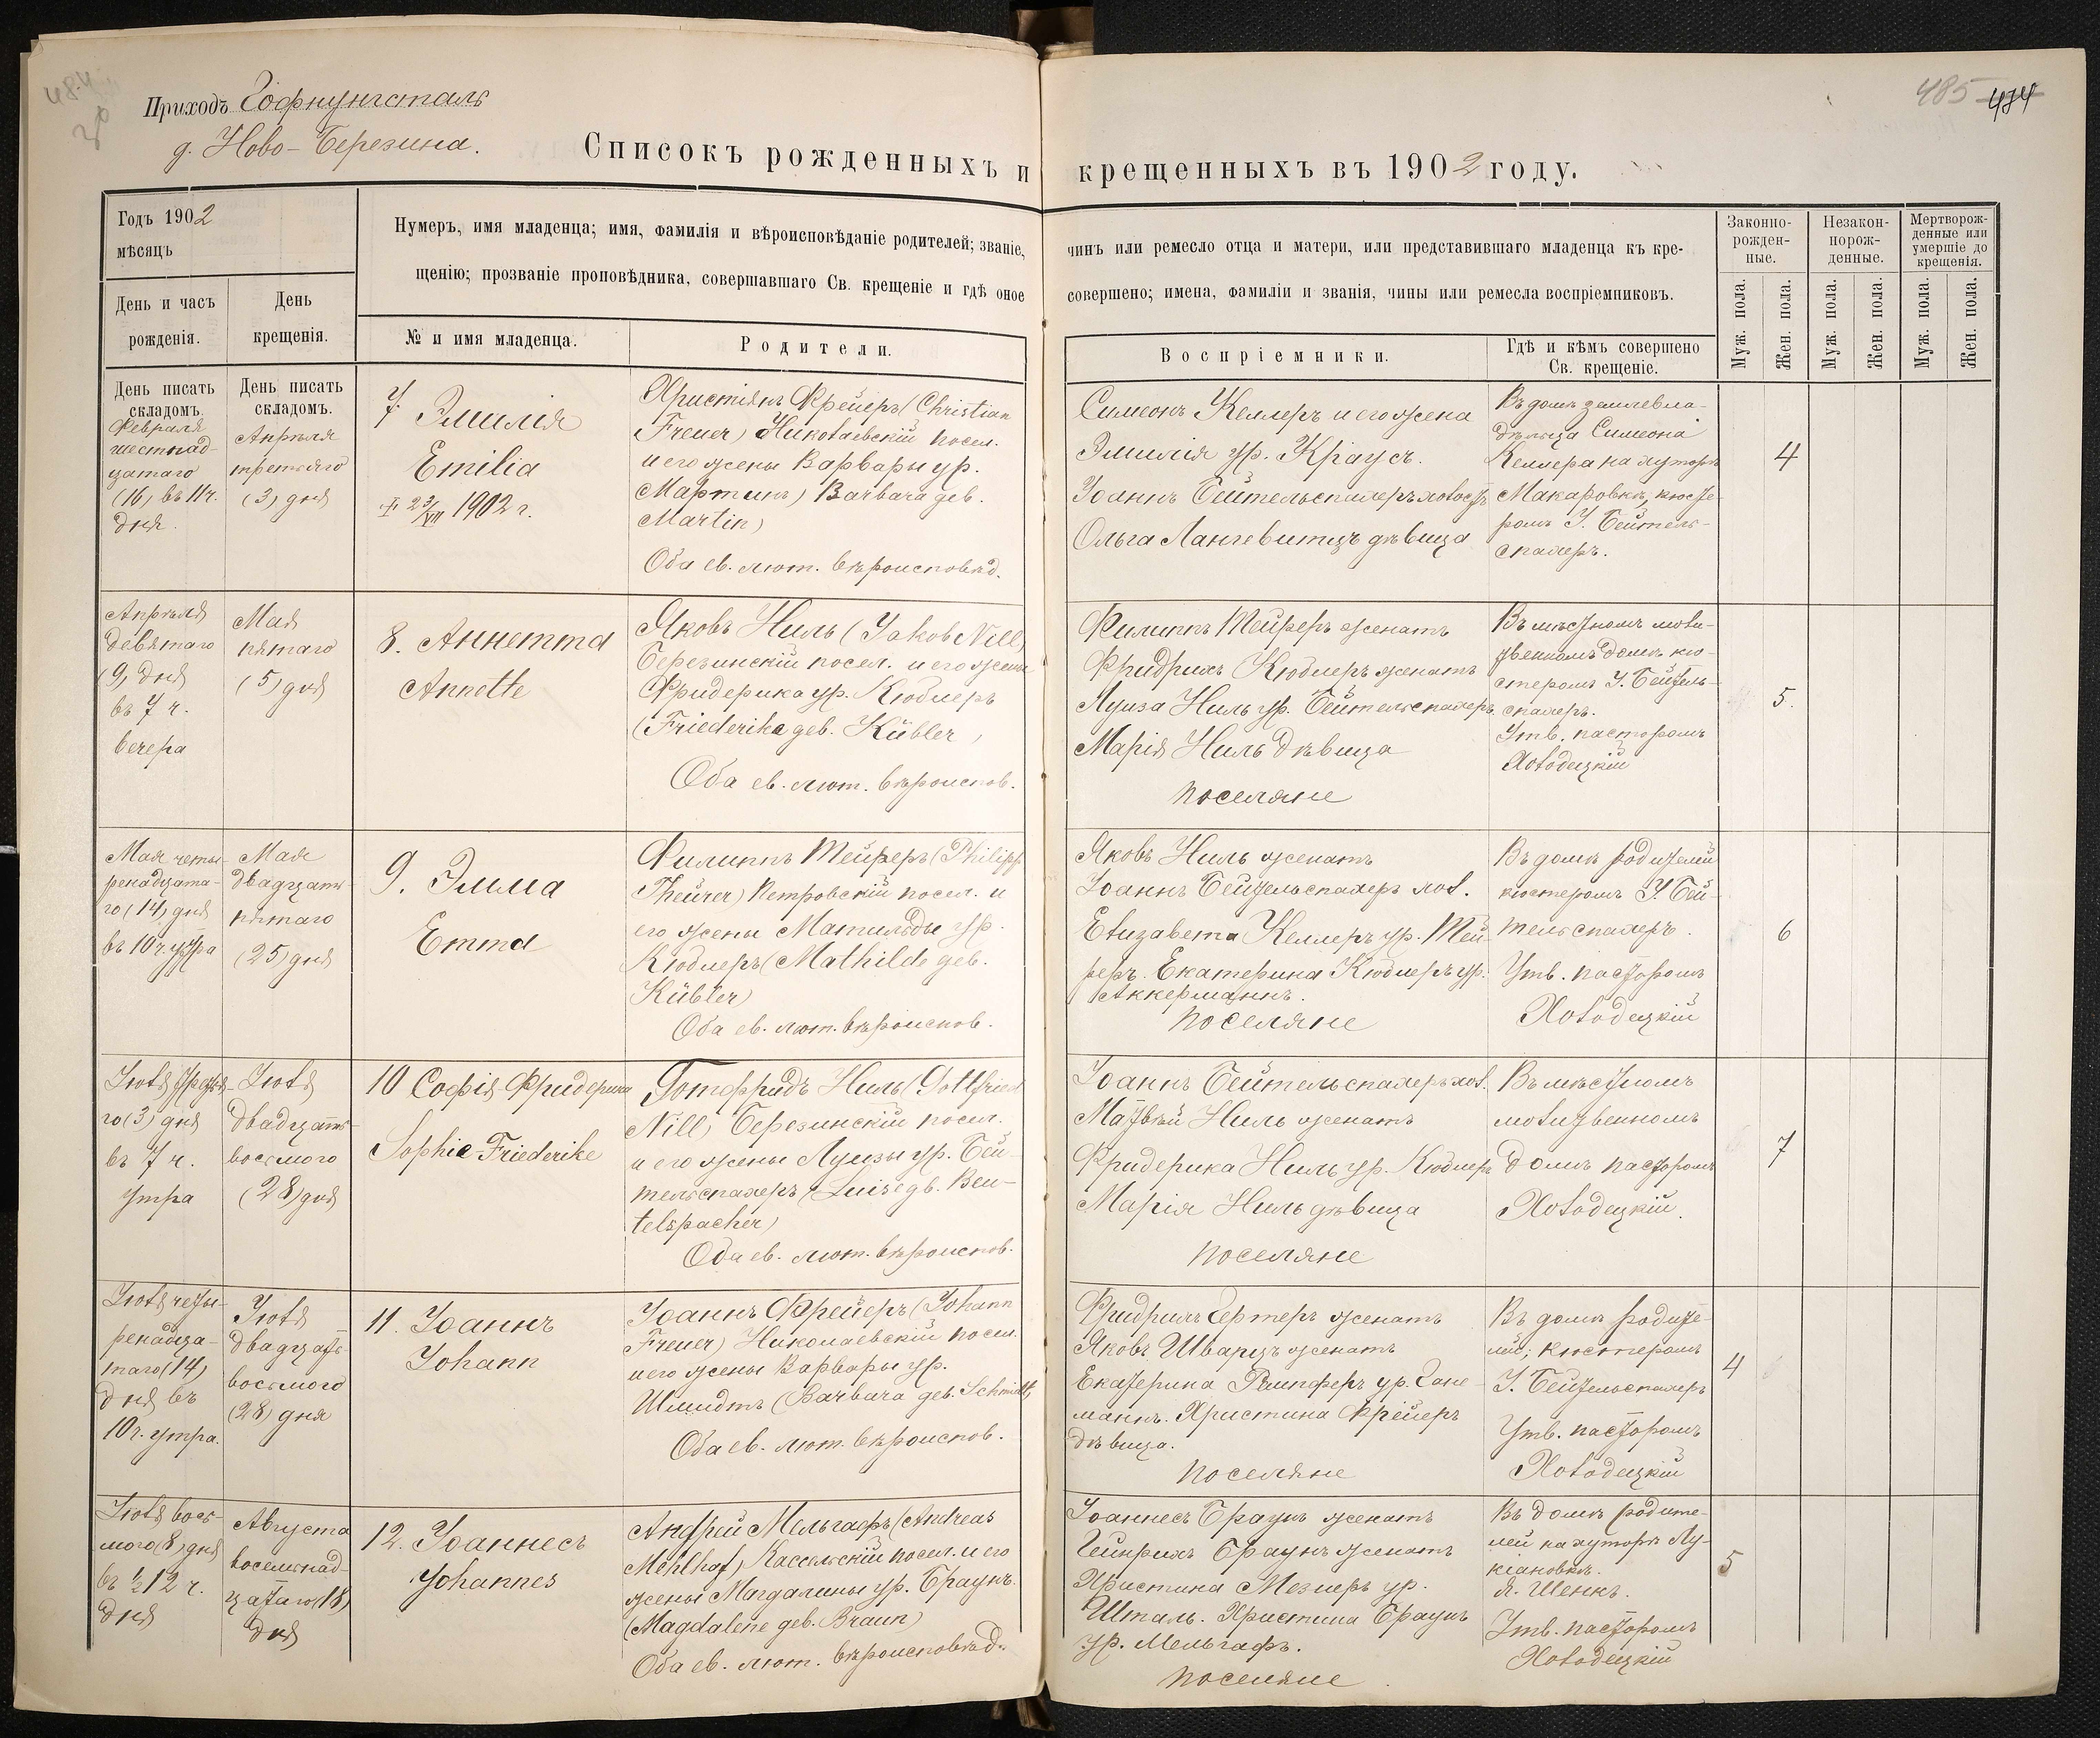 Приходъ Гофнунгсталь
д. Ново-Березина.
485 474
Списокъ рожденныхъ и крещенныхъ въ 1902 году.
Годъ 1902
мѣсяцъ
День и часъ
рожденія.
День
крещенія.
Нумеръ, имя младенца; имя, фамилія и вѣроисповѣданіе родителей; званіе, чинъ или ремесло отца и матери, или представившаго младенца къ кре-
щенію; прозваніе проповѣдника, совершавшаго Св. крещеніе и гдѣ оное совершено; имена, фамиліи и званія, чины или ремесла воспріемниковъ.
№ и имя младенца.
Родители.
Воспріемники.
Гдѣ и кѣмъ совершено
Св. крещеніе.
Законно-
рожден-
ные.
Незакон-
норож-
денные.
Мертворож-
денные или
умершіе до
крещенія.
Муж. пола.
Жен. пола.
Муж. пола.
Жен. пола.
Муж. пола.
Жен. пола.
День писать
складомъ.
День писать
складомъ.
Февраля
шестнад-
цатаго
(16) въ 11 ч.
дня.
Апрѣля
третьяго
(3) дня
7. Эмилія
Emilia
23/VII 1902 г.
Христіанъ Фрейеръ (Christian
Freuer) Николаевскій посел.
и его жены Варвары ур.
Мартинъ) Barbara geb.
Martin)
Оба ев. лют. вѣроисповѣд.
Симеонъ Келлеръ и его жена
Эмилія ур. Краусъ.
Іоаннъ Бейтельспахеръ холост.
Ольга Лангевитцъ дѣвица
Въ домѣ землевла-
дѣльца Симеона
Келлера на хуторѣ
Макаровкѣ, кюсте-
ромъ І. Бейтель-
спахеръ.
4
Апрѣля
девятаго
(9) дня
въ 7 ч.
вечера
Мая
пятаго
(5) дня
8. Аннетта
Annette
Яковъ Ниль (Jakob Nill)
Березинскій посел. и его жена
Фридерика ур. Кюблеръ
(Friederike geb. Kübler)
Оба ев. лют. вѣроиспов.
Филиппъ Тейреръ женатъ
Фридрихъ Кюблеръ женатъ
Луиза Ниль ур. Бейтельспахеръ.
Марія Ниль дѣвица
поселяне
Въ мѣстномъ моли-
твенномъ домѣ кю-
стеромъ І. Бейтель-
спахеръ.
Утв. пасторомъ
Холодецкій
5.
Мая четы-
ренадцата-
го (14) дня
въ 10 ч. утра
Мая
двадцать
пятаго
(25) дня
9. Эмма
Emma
Филиппъ Тейреръ (Philipp
Theurer) Петровскій посел. и
его жены Матильды ур.
Кюблеръ (Mathilde geb.
Kübler)
Оба ев. лют. вѣроиспов.
Яковъ Ниль женатъ
Іоаннъ Бейтельспахеръ хол.
Елизавета Келлеръ ур. Тей-
реръ. Екатерина Кюблеръ ур.
Аккерманнъ.
поселяне
Въ домѣ родителей
кюстеромъ І. Бей-
тельспахеръ.
Утв. пасторомъ
Холодецкій
6
Іюля третья-
го (3) дня
въ 7 ч.
утра
Іюля
двадцать
восьмого
(28) дня
10 Софія Фридерика
Sophie Friederike
Готфридъ Ниль (Gottfried
Nill) Березинскій посел.
и его жены Луизы ур. Бей-
тельспахеръ (Luise geb. Beu-
telspacher)
Оба ев. лют. вѣроиспов.
Іоаннъ Бейтельспахеръ хол.
Матвѣй Ниль женатъ
Фридерика Ниль ур. Кюблеръ
Марія Ниль дѣвица
поселяне
Въ мѣстномъ
молитвенномъ
домѣ пасторомъ
Холодецкій.
7
Іюля четы-
ренадца-
таго (14)
дня въ
10 ч. утра.
Іюля
двадцать
восьмого
(28) дня
11. Іоаннъ
Johann
Іоаннъ Фрейеръ (Johann
Freuer) Николаевскій посел.
и его жены Варвары ур.
Шмидтъ (Barbara geb. Schmidt)
Оба ев. лют. вѣроиспов.
Фридрихъ Гертеръ женатъ
Яковъ Шварцъ женатъ
Екатерина Румпферъ ур. Гане-
маннъ. Христина Фрейеръ
дѣвица.
поселяне
Въ домѣ родите-
лей, кюстеромъ
І. Бейтельспахеръ
Утв. пасторомъ
Холодецкій
4
Іюля вось-
мого (8) дня
въ ½ 12 ч.
дня
Августа
восемнад-
цатаго (18)
дня
12. Іоаннесъ
Johannes
Андрей Мельгафъ (Andreas
Mehlhaf) Кассельскій посел. и его
жены Магдалины ур. Браунъ.
(Magdalene geb. Braun)
Оба ев. лют. вѣроисповѣд.
Іоаннесъ Браунъ женатъ
Гейнрихъ Браунъ женатъ
Христина Мезнеръ ур.
Шталь. Христина Браунъ
ур. Мельгафъ.
поселяне
Въ домѣ родите-
лей на хуторѣ Лу-
кіановкѣ.
Я. Шенкъ.
Утв. пасторомъ
Холодецкій
5